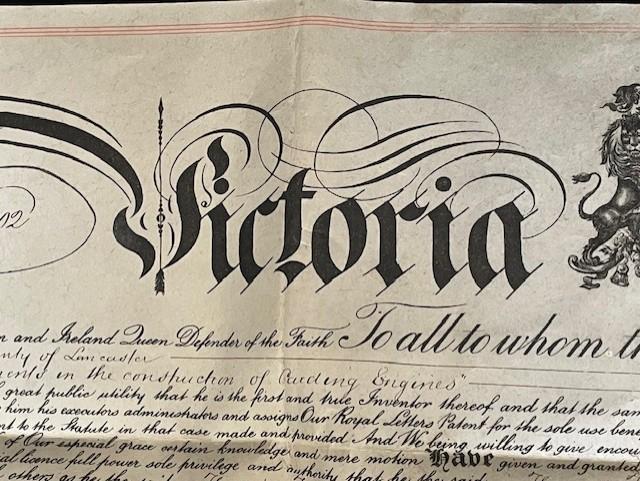 Victoria
02
and Ireland Queen Defender of the Faith To all to whom
of Lancaster
in the construction of Carding Engines"
great public utility that he is the first and true Inventor thereof and that the
him his executors administrators and assigns Our Royal Letters Patent for the sole use
to the Statute in that case made and provided And We being willing to give
of Our especial grace certain knowledge and mere motion Have given and granted
licence full power sole privilege and authority that he the said
others as he the said